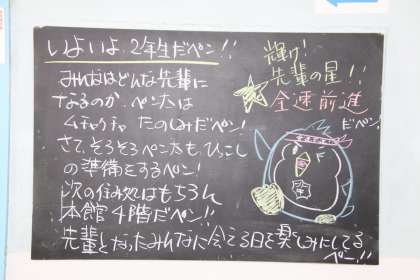 いよいよ、2年生だペン!!
みんなはどんな先輩に
なるのか、ペン太は
ムチャクチャ たのしみだペン!
さて、そろそろペン太も、ひっこし
の準備をするペン!
次の住み処はもちろん
本館4階だペン!!
先輩となったみんなに会える日を楽しみにしてる
ペン!!
輝け!
先輩の星!!
全速前進
だペン!